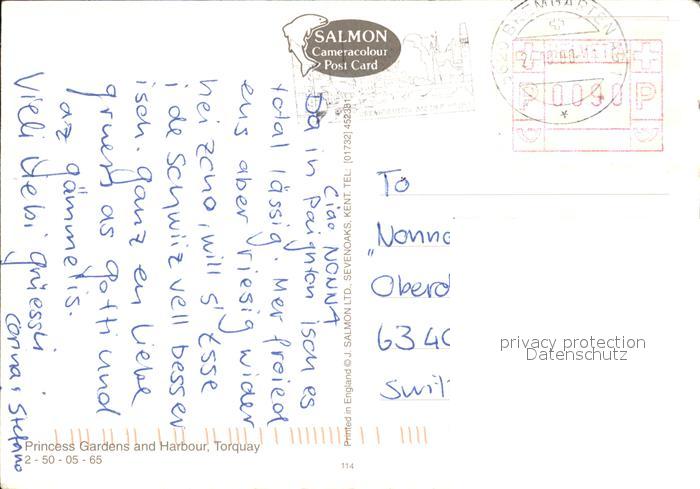 SALMON
Cameracolour
Post Card
BREMGARTEN
P 0090 P
Ciao NONNA
Da in Paignton isch es
total lässig. Mer freied
eus aber riesig wider
hei zcho, will s'Esse
i de Schwiiz vell besser
isch. Ganz en liebe
gruess as Gotti und
az gämmelis.
Vieli liebi grüessli
Corina + Stefano
Printed in England © J. SALMON LTD., SEVENOAKS, KENT. TEL: (01732) 452381
To
"Nonna
Oberd
6340
Swit
privacy protection
Datenschutz
Princess Gardens and Harbour, Torquay
2 - 50 - 05 - 65
114